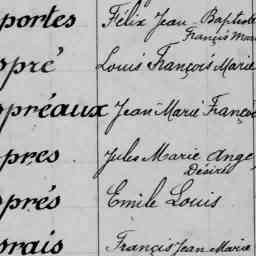 portes Félix Jean-Baptiste
François Marie
pré Louis François Marie
préaux Jean Marie François
pres Jules Marie Ange
Désiré
prés Emile Louis
rais Francis Jean Marie